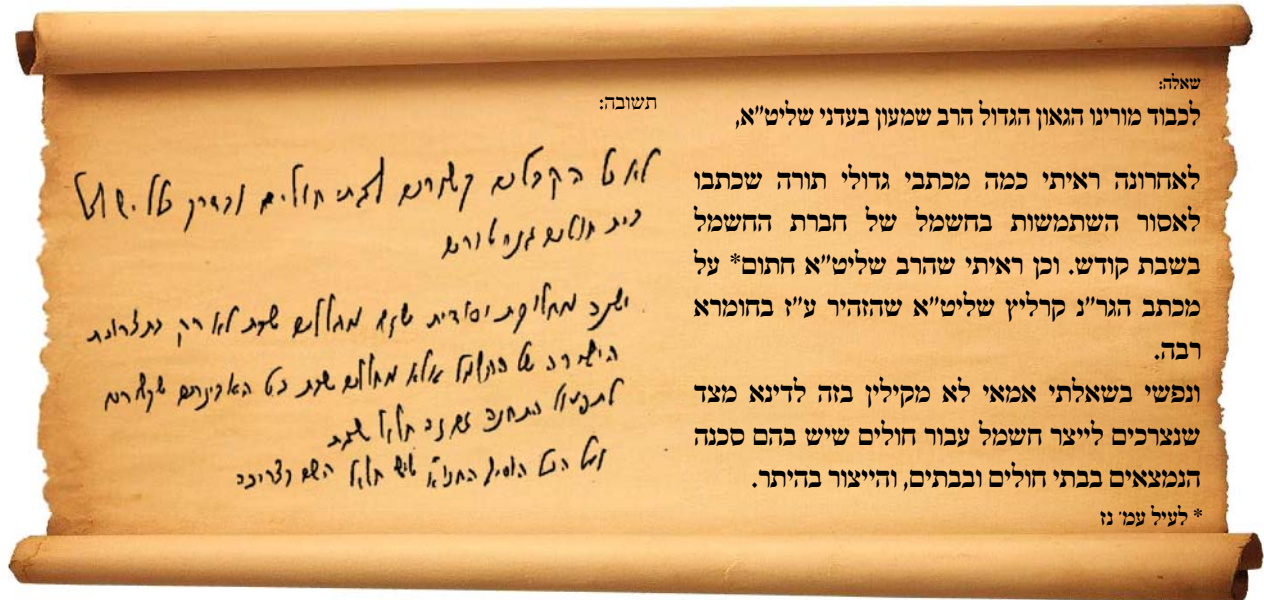 שאלה:
לכבוד מורינו הגאון הגדול הרב שמעון בעדני שליט״א,
לאחרונה ראיתי כמה מכתבי גדולי תורה שכתבו
לאסור השתמשות בחשמל של חברת החשמל
בשבת קודש. וכן ראיתי שהרב שליט״א חתום* על
מכתב הגר״נ קרליץ שליט״א שהזהיר ע״ז בחומרא
רבה.
ונפשי בשאלתי אמאי לא מקילין בזה לדינא מצד
שנצרכים לייצר חשמל עבור חולים שיש בהם סכנה
הנמצאים בבתי חולים ובבתים, והייצור בהיתר.
* לעיל עמ׳ נז
תשובה:
לא כל קשורים לבתי חולים ובדרך כלל יש
בית חולים גנרטורים
ישנה יסודית מחללים שבת לא רק
הישירה של החשמל אלא מחללים שבת בכל האביזרים שקשורים
לתפעול התחנה חילול שבת
ועל הכל הוסיף החזו״א שיש חילול השם בצריכה